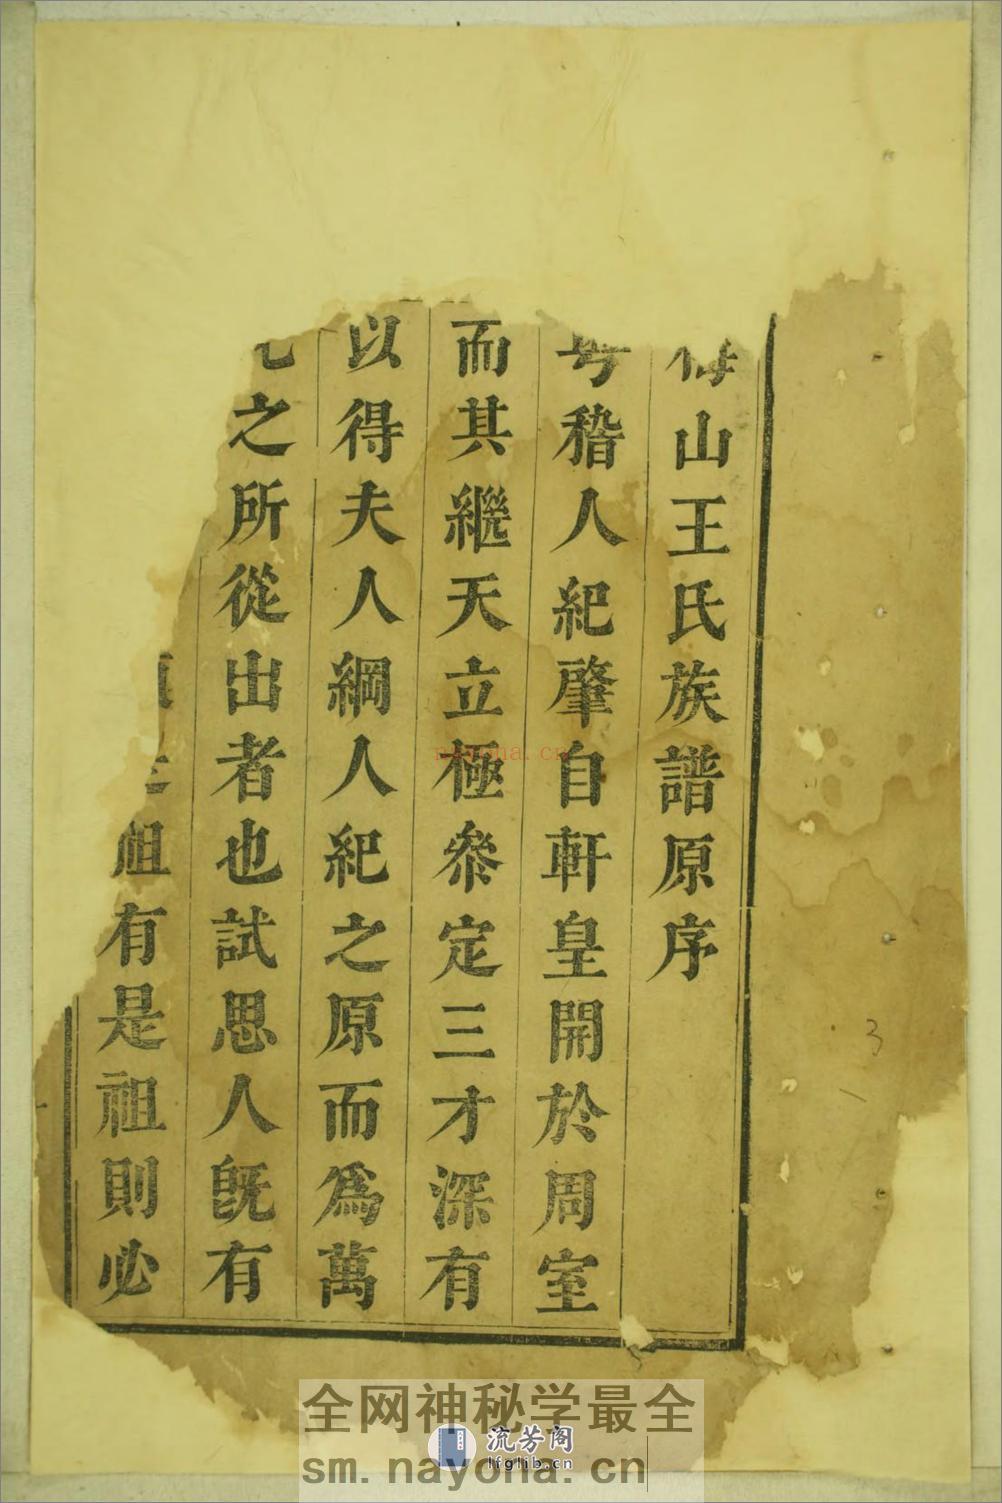 山王氏族譜原序
稽人紀肇自軒皇開於周室
而其繼天立極參定三才深有
以得夫人綱人紀之原而爲萬
之所從出者也試思人旣有
祖有是祖則必
3
nayona.cn
全网神秘学最全
流芳阁
lfglib.cn
sm.nayona.cn